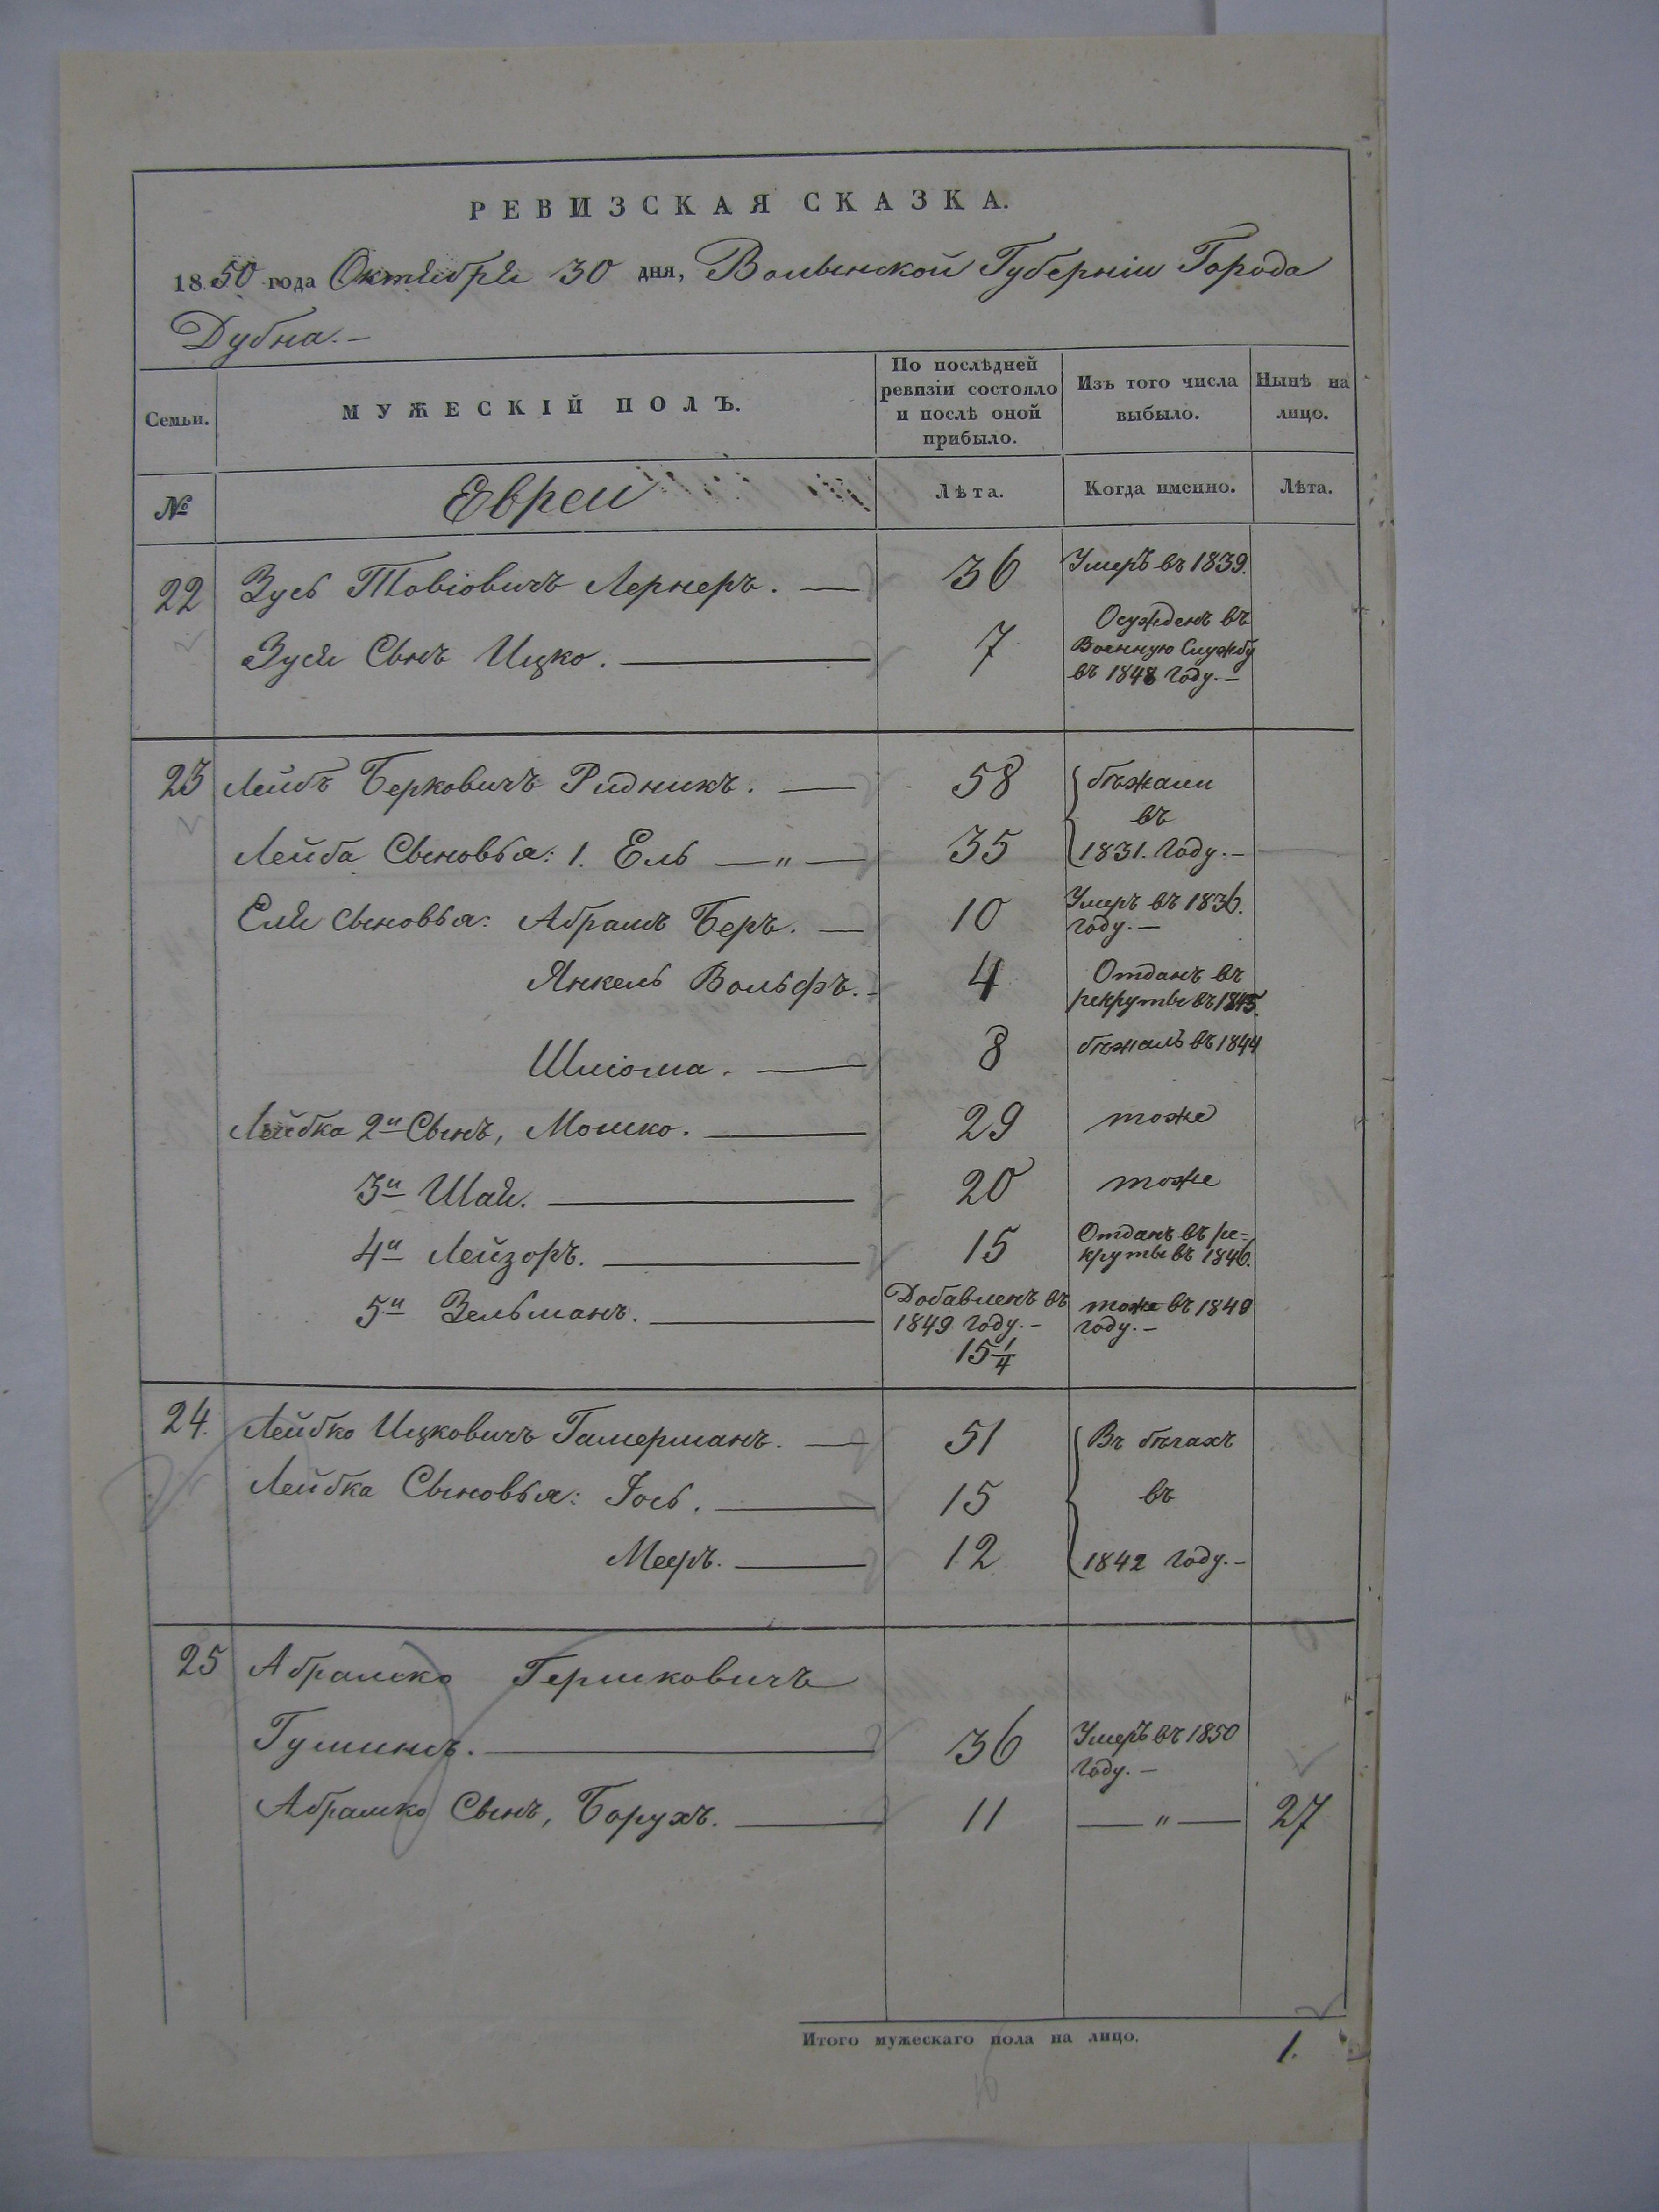 РЕВИЗСКАЯ СКАЗКА.
1850 года Октября 30 дня, Волынской Губерніи Города
Дубна.—
Семьи.
МУЖЕСКІЙ ПОЛЪ.
По послѣдней
ревизіи состояло
и послѣ оной
прибыло.
Изъ того числа
выбыло.
Нынѣ на
лицо.
№
Евреи
Лѣта.
Когда именно.
Лѣта.
22 Зусь Товіовичъ Лернеръ. — 36 Умеръ въ 1839.
Зуся Сынъ Ицко. — 7 Осужденъ въ
Военную Службу
въ 1848 году.—
23 Лейбъ Берковичъ Ридникъ. — 58 бѣжали
въ
Лейба Сыновья: 1. Ель — „ — 35 1831. году.—
Еля Сыновья: Абрамъ Беръ. — 10 Умеръ въ 1836.
году.—
Янкель Вольфъ.— 4 Отданъ въ
рекруты въ 1845.
Шліома. — 8 бѣжалъ въ 1844
Лейбка 2й Сынъ, Мошко. — 29 тоже
3й Шая. — 20 тоже
4й Лейзоръ. — 15 Отданъ въ ре-
круты въ 1846.
5й Зельманъ. — Добавленъ въ тоже въ 1849
1849 году.— году.—
15 1/4
24. Лейбко Ицковичъ Гамерманъ. — 51 Въ бѣгахъ
Лейбка Сыновья: Іось. — 15 въ
Мееръ. — 12 1842 году.—
25 Абрамко Гершковичъ
Гушинъ. — 36 Умеръ въ 1850
году.—
Абрамко Сынъ, Борухъ. — 11 — „ — 27
Итого мужескаго пола на лицо. 1.